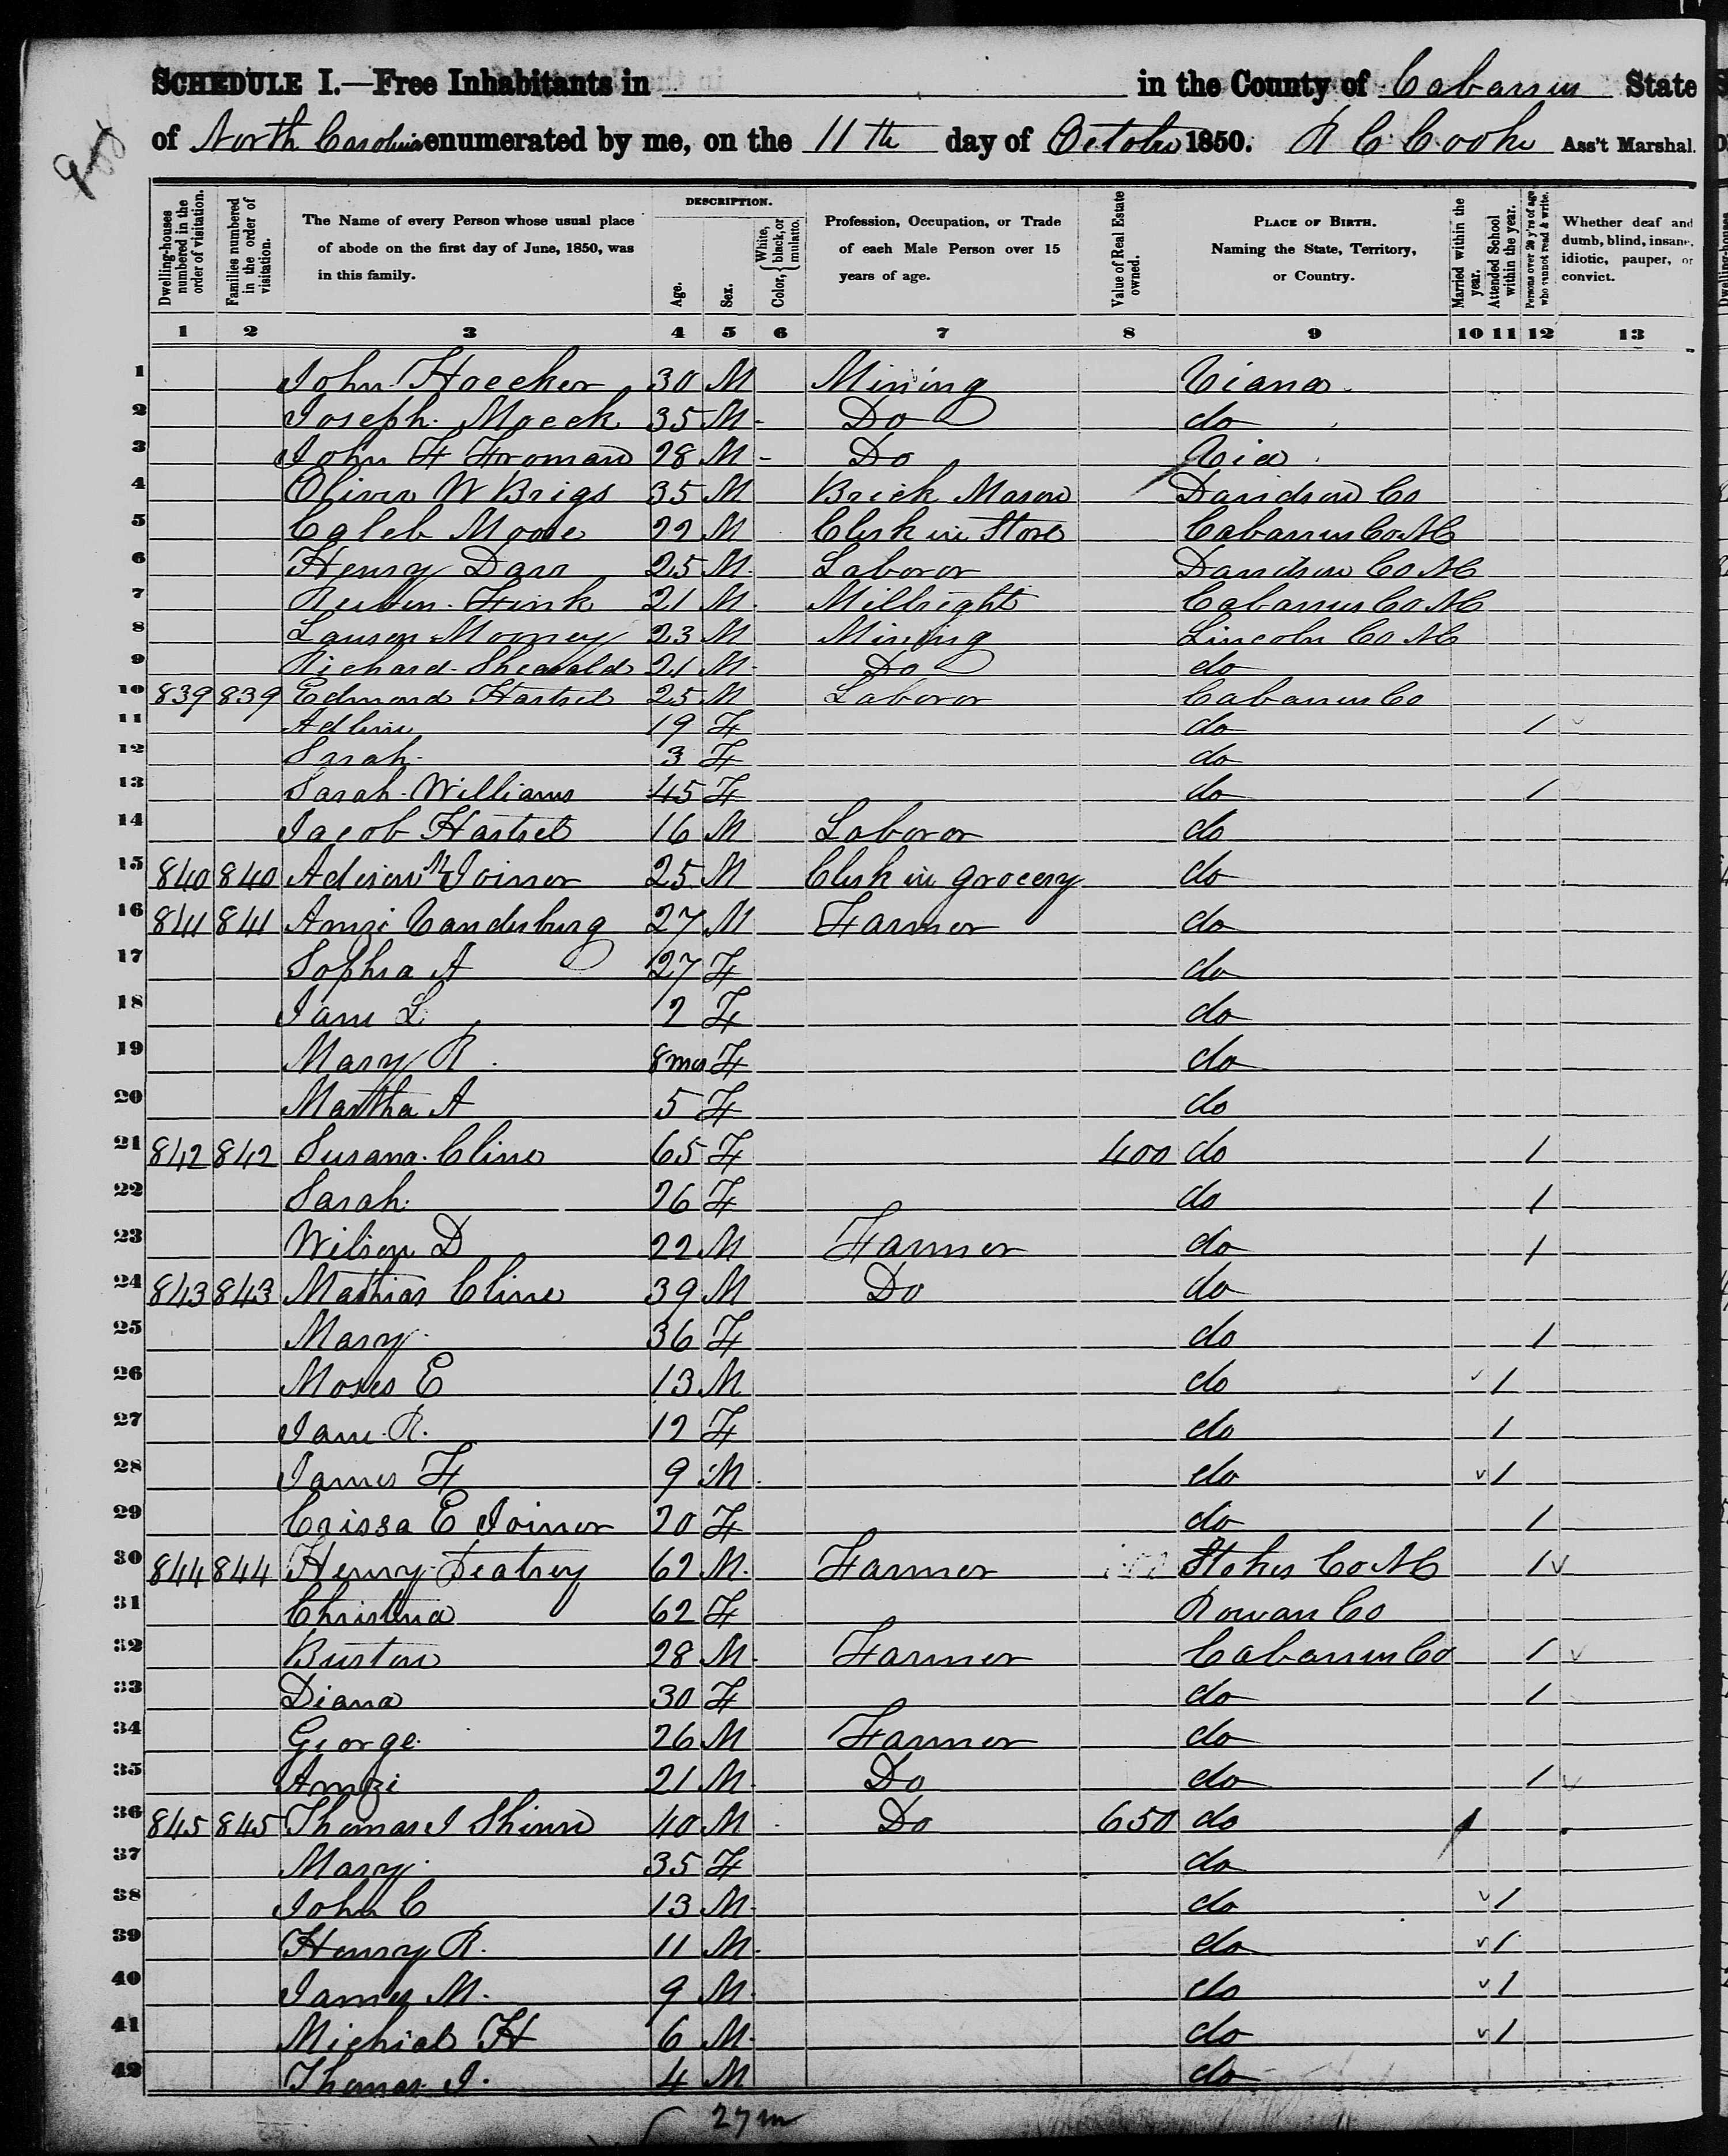 SCHEDULE I.—Free Inhabitants in in the County of Cabarrus State
of North Carolina enumerated by me, on the 11th day of October 1850. R C Cooke Ass't Marshal.
Dwelling-houses numbered in the order of visitation.
Families numbered in the order of visitation.
The Name of every Person whose usual place of abode on the first day of June, 1850, was in this family.
DESCRIPTION.
Age.
Sex.
Color, { White, black, or mulatto.
Profession, Occupation, or Trade of each Male Person over 15 years of age.
Value of Real Estate owned.
PLACE OF BIRTH. Naming the State, Territory, or Country.
Married within the year.
Attended School within the year.
Persons over 20 y'rs of age who cannot read & write.
Whether deaf and dumb, blind, insane, idiotic, pauper, or convict.
1 2 3 4 5 6 7 8 9 10 11 12 13
1 John Hoecker 30 M Mining Viana
2 Joseph Moeck 35 M Do do
3 John F Froman 28 M Do Via
4 Oliver W Brigs 35 M Brick Mason Davidson Co
5 Caleb Moose 22 M Clerk in Store Cabarrus Co NC
6 Henry Darr 25 M Laboror Davidson Co NC
7 Reuben Fink 21 M Millright Cabarrus Co NC
8 Lauson Mooney 23 M Mining Lincoln Co NC
9 Richard 21 M Do do
10 839 839 Edmond Hartsel 25 M Laboror Cabarrus Co
11 Adline 19 F do 1
12 Sarah 3 F do
13 Sarah Williams 45 F do 1
14 Jacob Hartsel 16 M Laboror do
15 840 840 Adison M Joiner 25 M Clerk in grocery do
16 841 841 Amzi Vanderburg 27 M Farmer do
17 Sophia A 27 F do
18 Jane L 2 F do
19 Mary R 8mos F do
20 Martha A 5 F do
21 842 842 Susana Cline 65 F 400 do 1
22 Sarah 26 F do 1
23 Wilson D 22 M Farmer do 1
24 843 843 Mathias Cline 39 M Do do
25 Mary 36 F do 1
26 Moses E 13 M do 1
27 Jane R. 12 F do 1
28 James F 9 M do 1
29 Crissa E Joiner 20 F do 1
30 844 844 Henry 62 M Farmer Stokes Co NC 1
31 Christina 62 F Rowan Co
32 Burton 28 M Farmer Cabarrus Co 1
33 Diana 30 F do 1
34 George 26 M Farmer do
35 Amzi 21 M Do do 1
36 845 845 Thomas J Shinn 40 M Do 650 do
37 Mary 35 F do
38 John C 13 M do 1
39 Henry R. 11 M do 1
40 James M. 9 M do 1
41 Michial H 6 M do 1
42 Thomas J. 4 M do
27 m